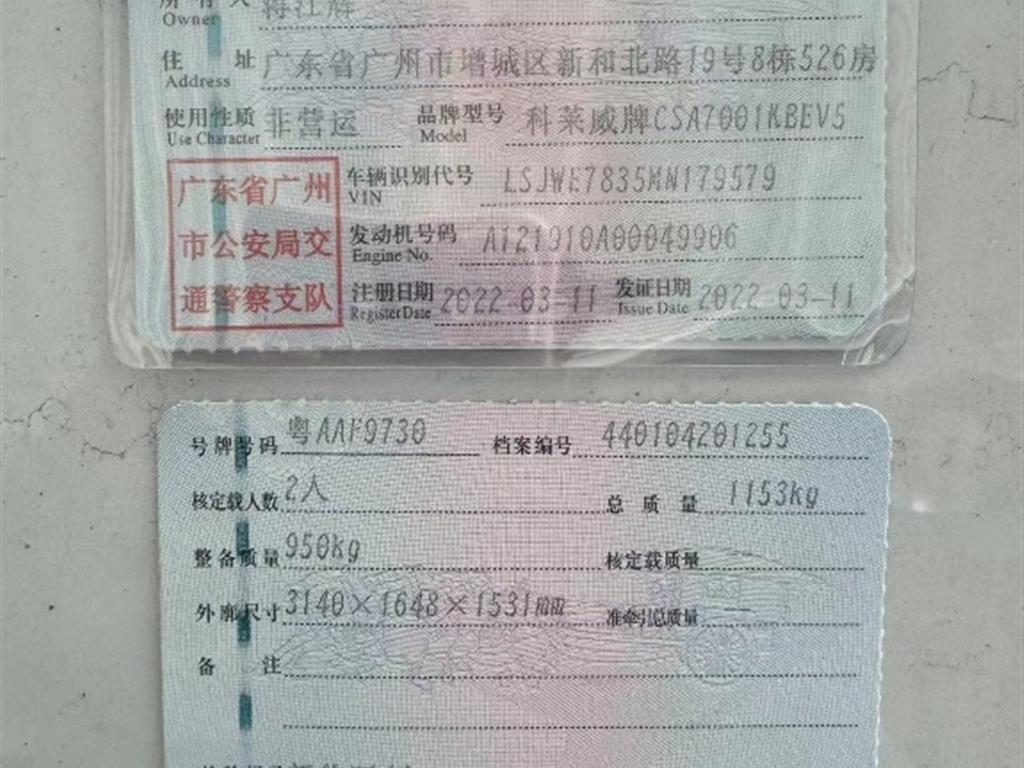 Owner
住 址 广东省广州市增城区新和北路19号8栋526房
Address
使用性质 非营运 品牌型号 科莱威牌CSA7001KBEV5
Use Character Model
广东省广州
市公安局交
通警察支队
车辆识别代号 LSJWE7835MN179579
VIN
发动机号码 A121910A00049906
Engine No.
注册日期 2022-03-11 发证日期 2022-03-11
Register Date Issue Date
号牌号码 粤AAF9730 档案编号 440104201255
核定载人数 2人 总 质 量 1153kg
整备质量 950kg 核定载质量
外廓尺寸 3140×1648×1531mm 准牵引总质量 --
备 注